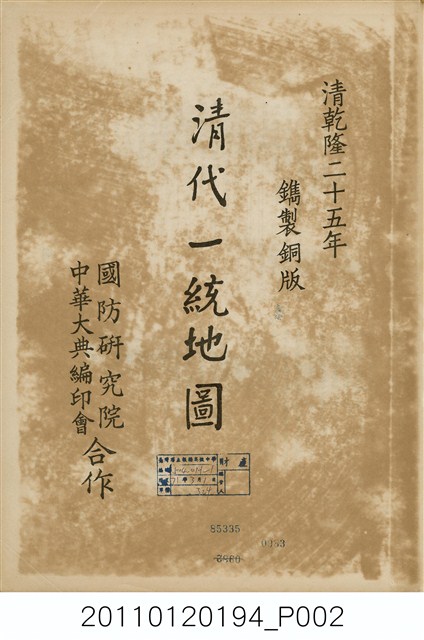 清乾隆二十五年
鐫製銅版
清代一統地圖
國防研究院
中華大典編印會
合作
財產
85335
20110120194_P002